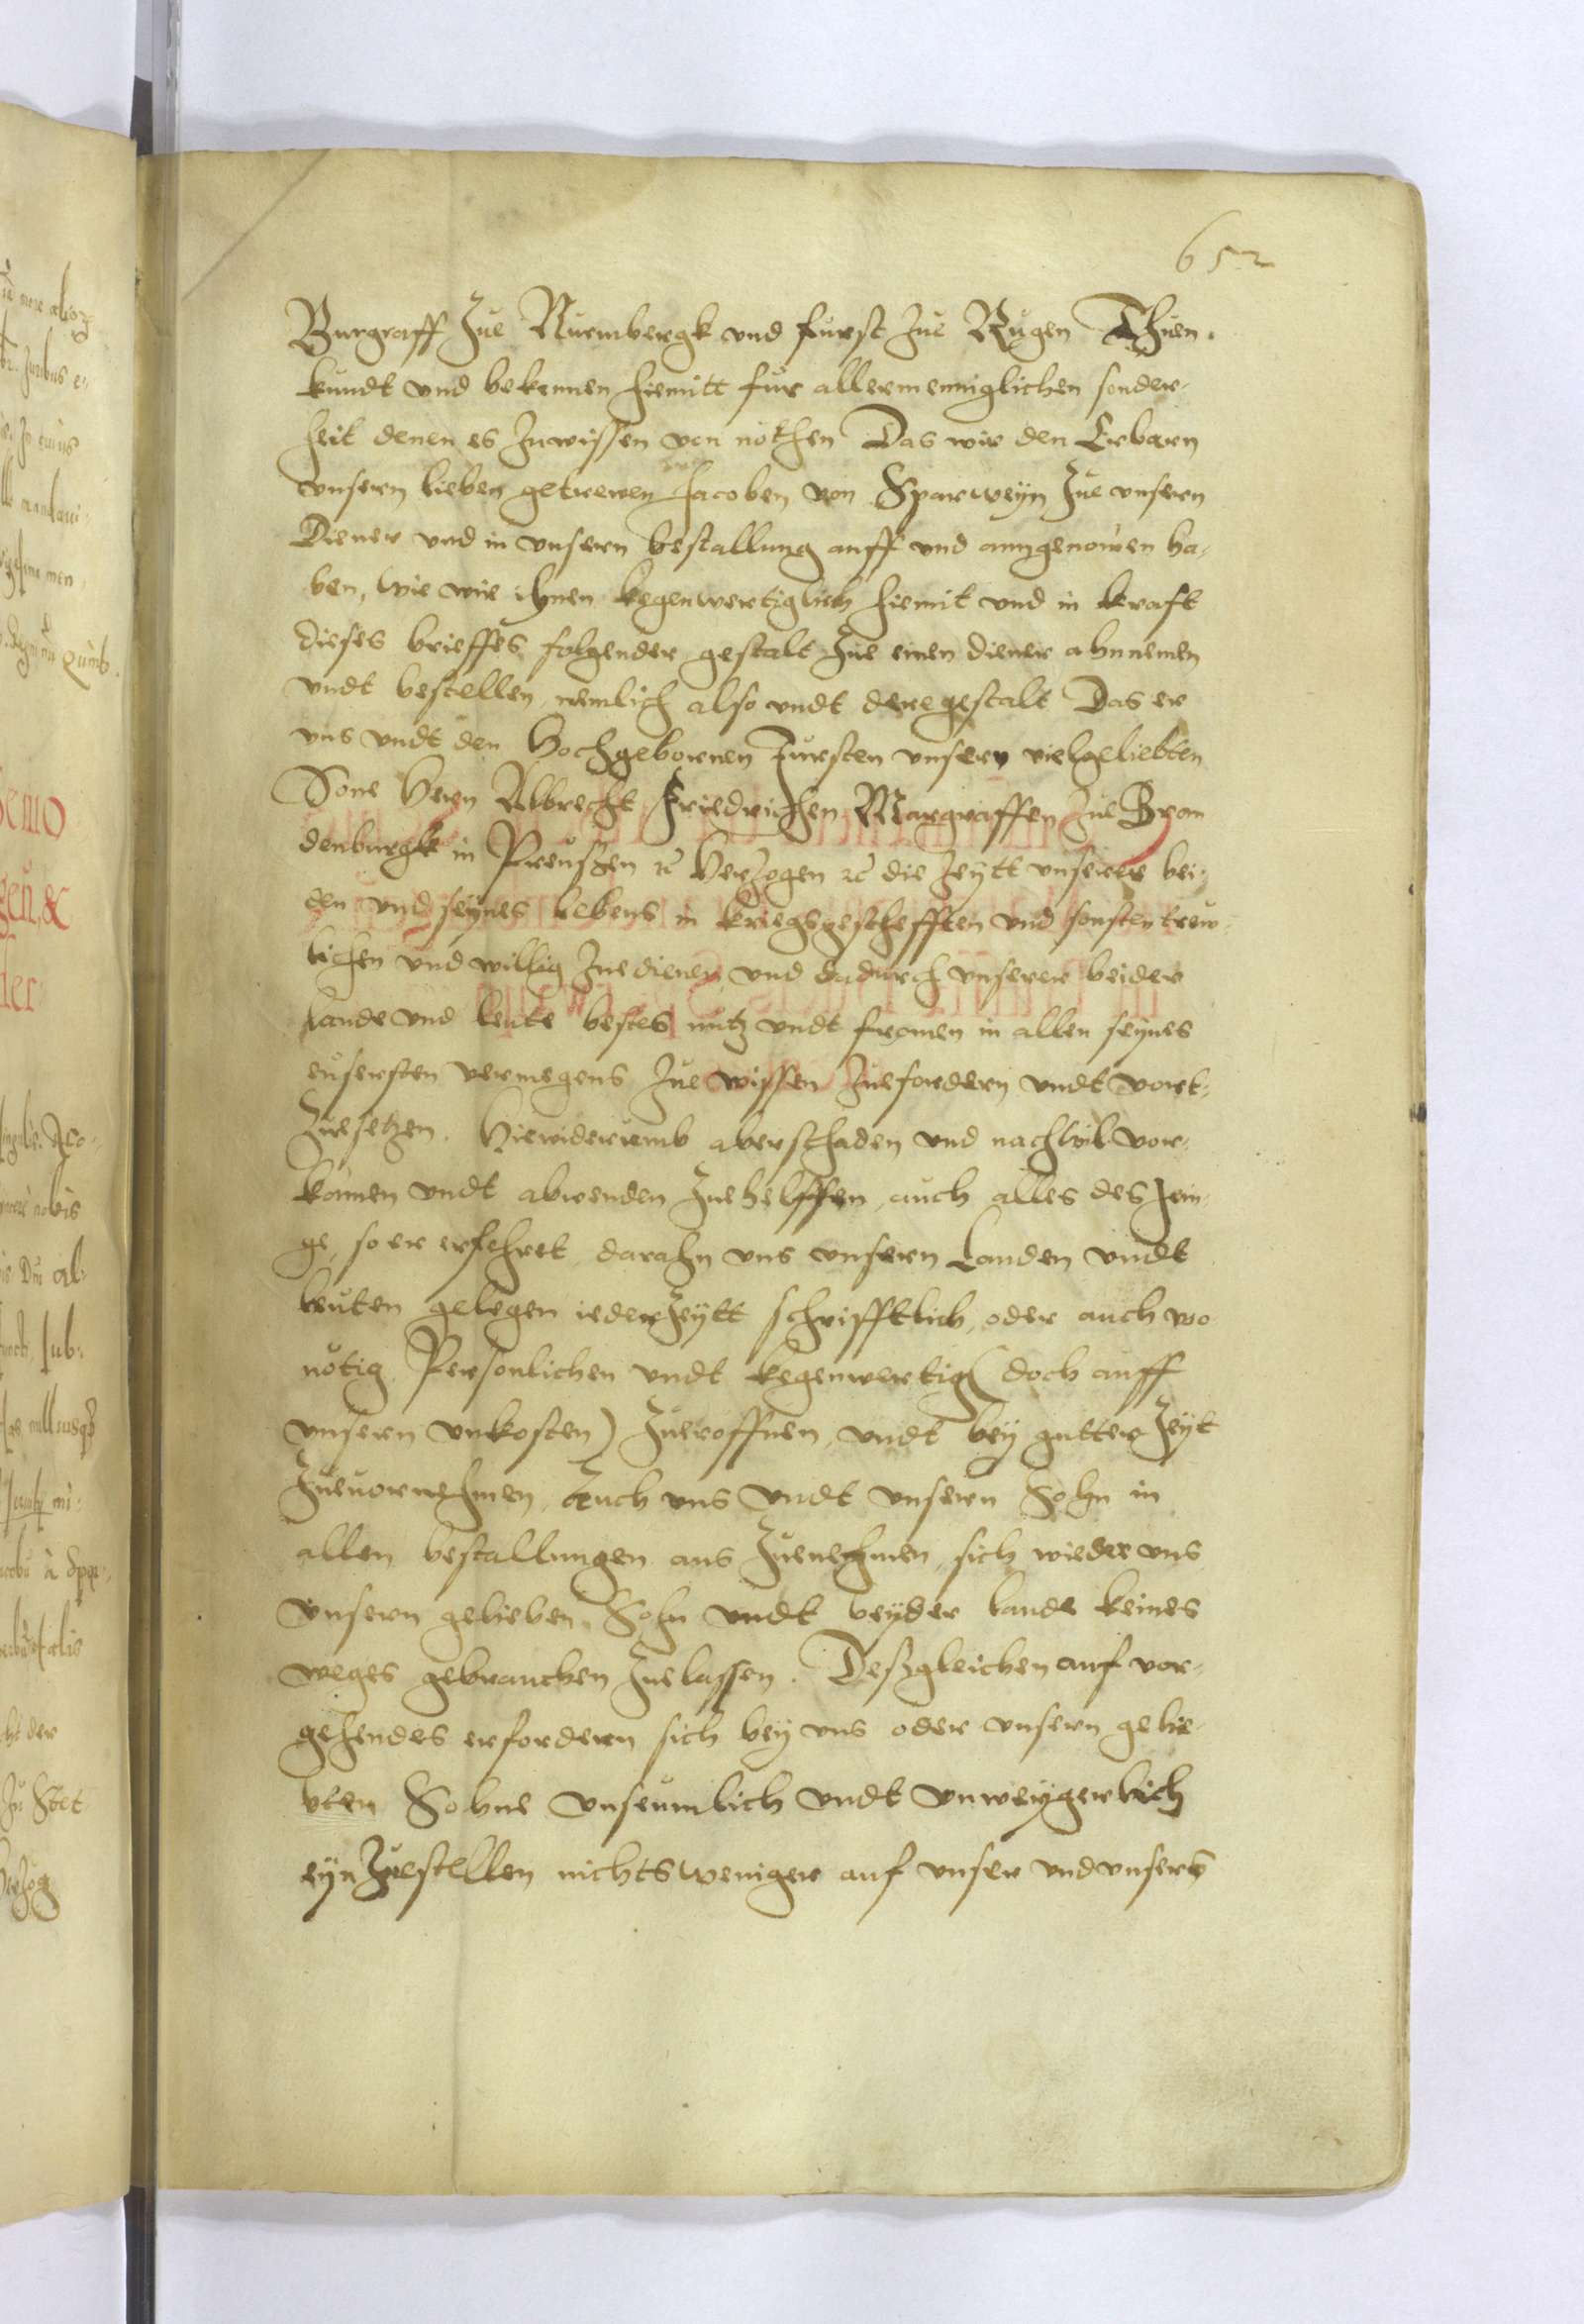 652
Burgraff Zue Nurmbergk vnd furst zue Rugen Thuen.
kundt vnd bekennen hiemitt fur allermenniglichen sonder-
heit denen es zuwissen von nöthen Das wir den Erbarn
vnsern lieben getrewen Jacoben von Sparweyn Zue vnsern
Diener vnd in vnsern bestallung auff vnd anngenomen ha-
ben, Wie wir ihnen kegenwertiglich hiemit vnd in kraft
dieses brieffes folgender gestalt Zue einen diener ahnnemen
vndt bestellen, nemlich also vndt deregestalt Das er
vns vndt den Hochgebornen Fursten vnsern vielgeliebten
Sone Hern Albrecht Friedrichen Margraffen zue Bran
denburgk in Preußen etc Herzogen etc die Zeytt vnserer bei-
den vnd seynes lebens in kriegsgeschefften vnd sonsten trew-
lichen vnd willig Zuedienen, vnd dadurch vnserer beider
Lande vnd leute bestes nutz vndt fromen in allen seynes
eusersten vermegens Zue wissen Zuefordern vndt vort-
Zuesetzen. Hiewiderumb aber schaden vnd nachteil vor-
komen vndt abwenden Zuehelffen, auch alles des Jeni-
ge, so er erfehret darahn vns vnsern Landen vndt
leuten gelegen iederZeytt schrifftlich, oder auch wo
nötig Personlichen vndt kegenwertig (doch auff
vnsern vnkosten) Zueroffnen, vndt bey gutter Zeyt
Zueuornehmen, Auch vns vndt vnsern Sohn in
allen bestallungen aus Zuenehmen, sich wieder vns
vnsern gelieben Sohn vndt beyder lande keines
weges gebrauchen Zuelassen. Deßgleichen auf vor-
gehendes erfordern sich bey vns oder vnsern gelie-
bten Sohne vnseumlich vndt vnweygerlich
eynZuestellen nichtsweniger auf vnser vnd vnsers